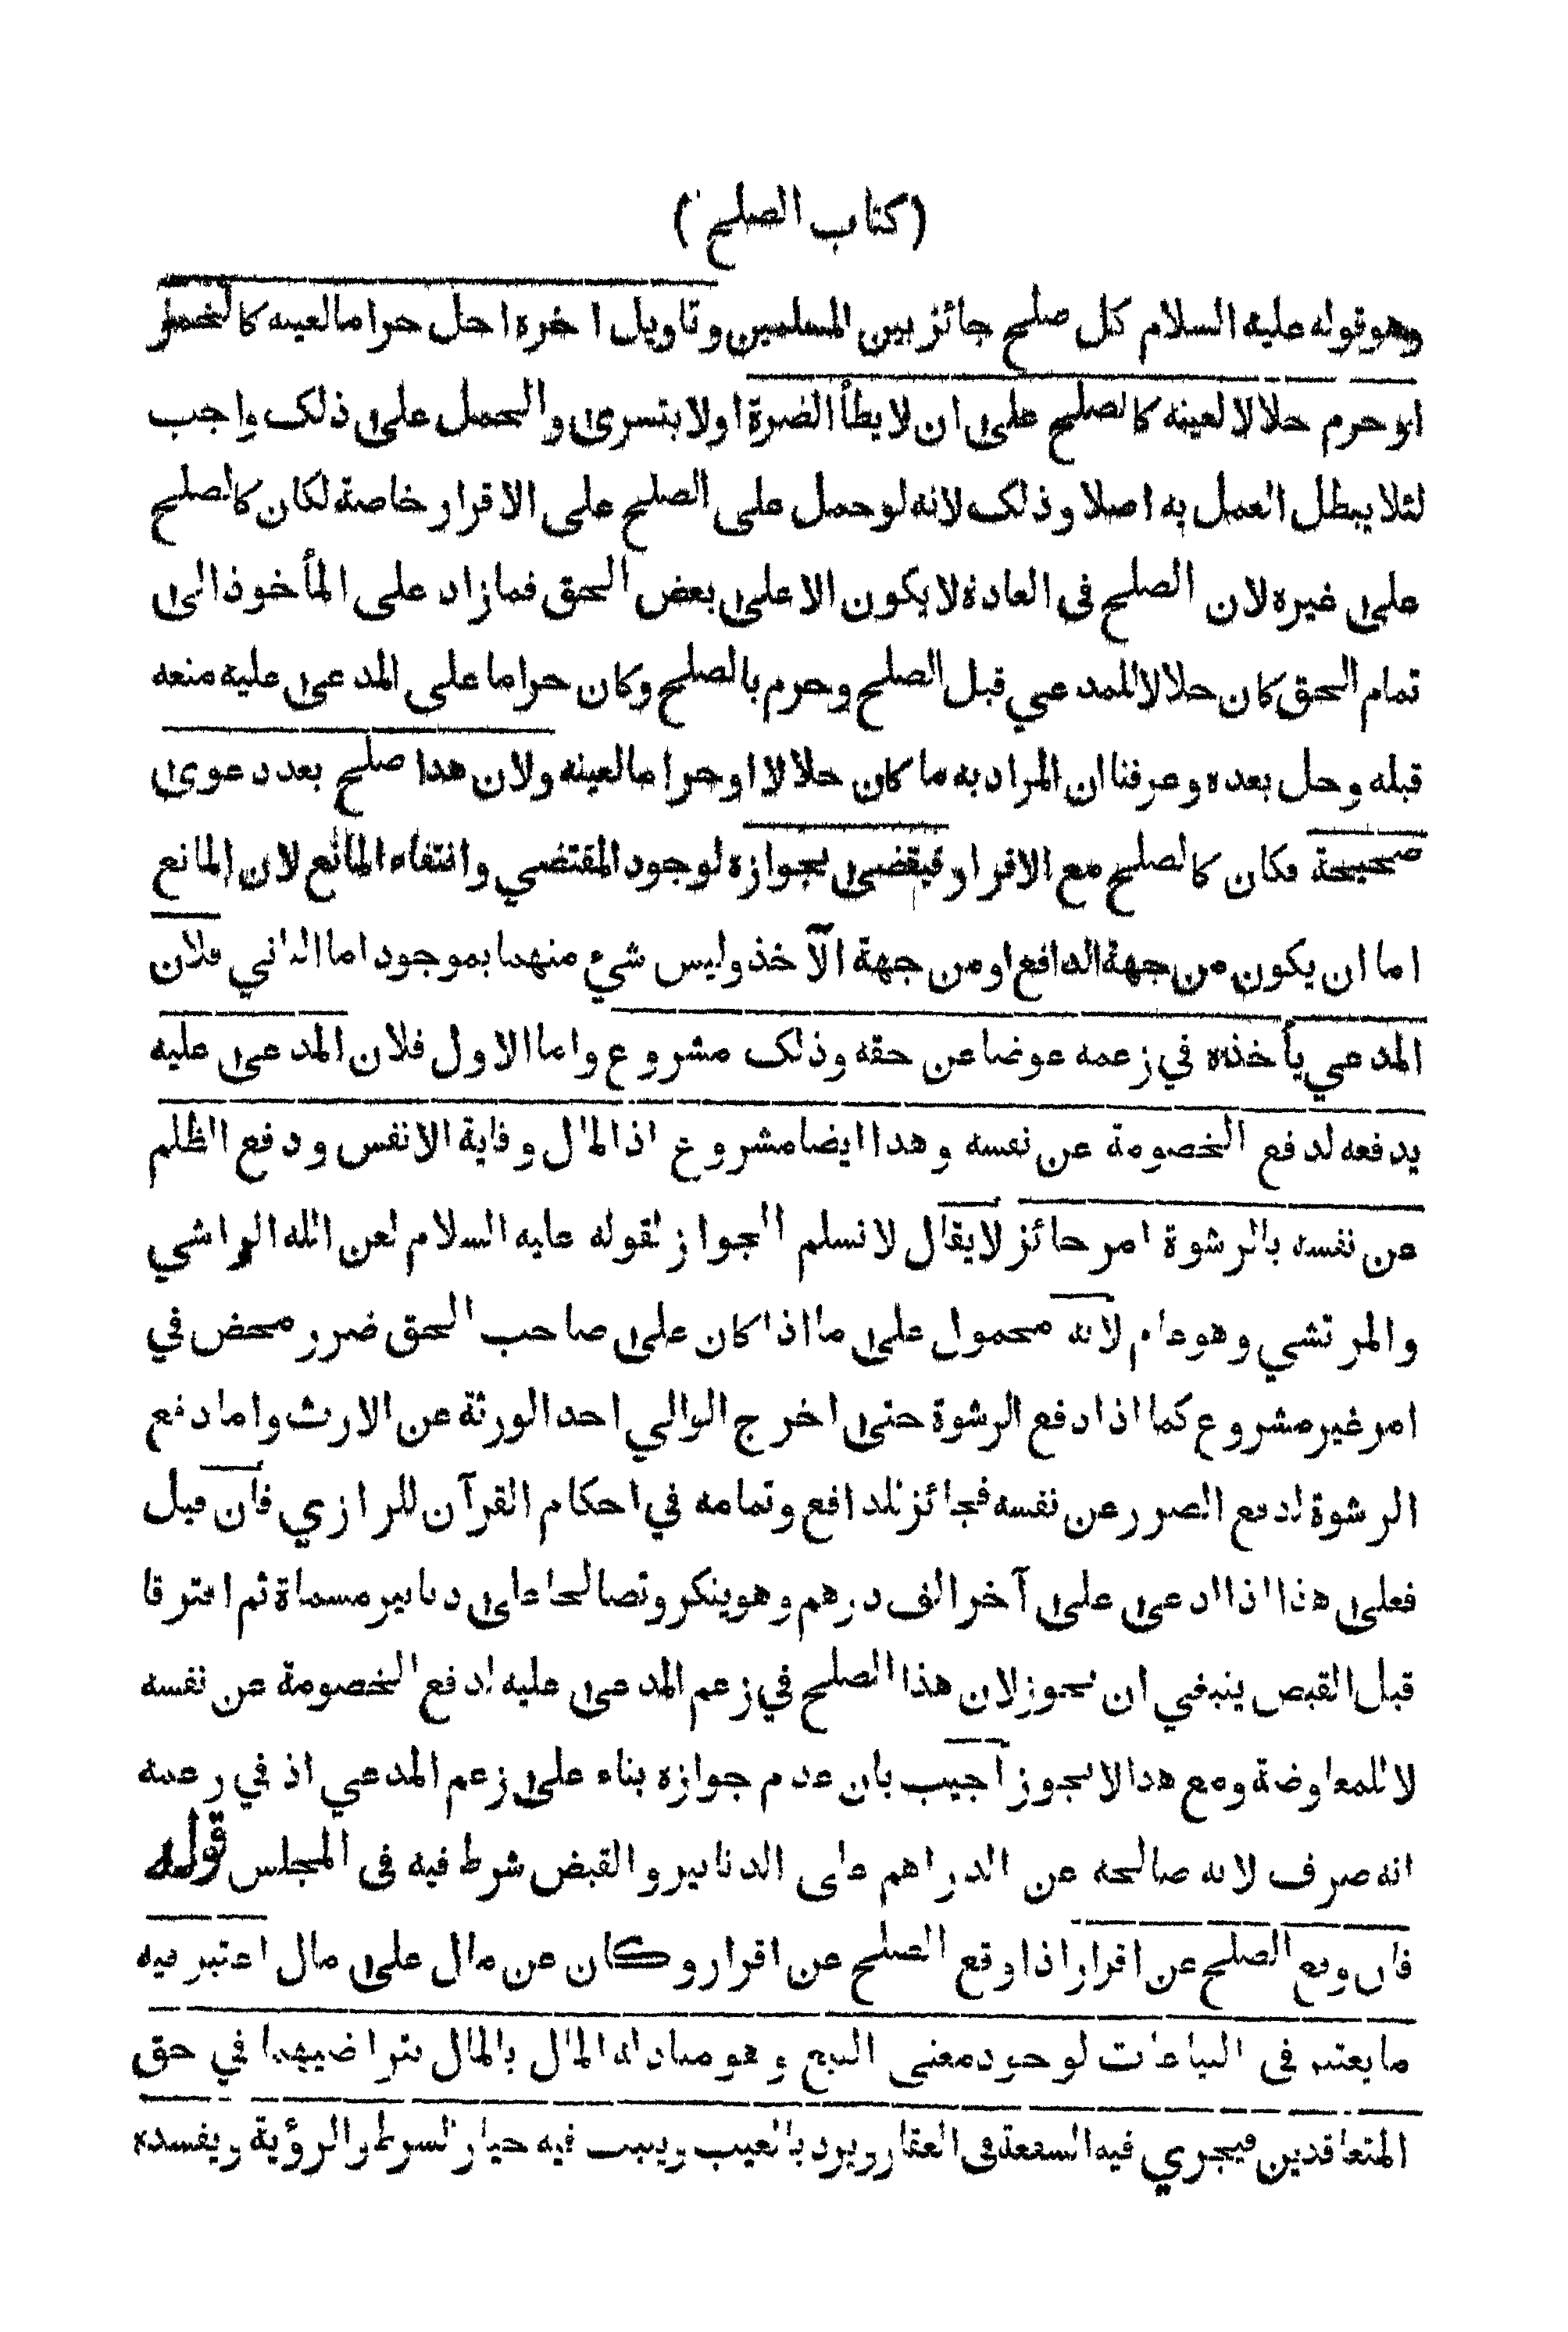 (كتاب الصلح)
وهو قوله عليه السلام كل صلح جائز بين المسلمين وتاويل اخره احل حراما لعينه كالخمر
او حرم حلالا لعينه كالصلح على ان لا يطأ الضرة او لا يتسرى والحمل على ذلك واجب
لئلا يبطل العمل به اصلا وذلك لانه لو حمل على الصلح على الاقرار خاصة لكان كالصلح
على غيره لان الصلح في العادة لا يكون الا على بعض الحق فما زاد على المأخوذ الى
تمام الحق كان حلالا للمدعي قبل الصلح وحرم بالصلح وكان حراما على المدعى عليه منعه
قبله وحل بعده وعرفنا ان المراد به ما كان حلالا او حراما لعينه ولان هذا صلح بعد دعوى
صحيحة فكان كالصلح مع الاقرار فيقضى بجوازه لوجود المقتضي وانتفاء المانع لان المانع
اما ان يكون من جهة الدافع او من جهة الآخذ وليس شيء منهما بموجود اما الثاني فلان
المدعي يأخذه في زعمه عوضا عن حقه وذلك مشروع واما الاول فلان المدعى عليه
يدفعه لدفع الخصومة عن نفسه وهذا ايضا مشروع اذ المال وقاية الانفس ودفع الظلم
عن نفسه بالرشوة امر جائز لا يقال لا نسلم الجواز لقوله عليه السلام لعن الله الراشي
والمرتشي وهو عام لانه محمول على ما اذا كان على صاحب الحق ضرر محض في
امر غير مشروع كما اذا دفع الرشوة حتى اخرج الوالي احد الورثة عن الارث واما دفع
الرشوة لدفع الضرر عن نفسه فجائز للدافع وتمامه في احكام القرآن للرازي فان قيل
فعلى هذا اذا ادعى على آخر الف درهم وهو ينكر وتصالحا على دنانير مسماة ثم افترقا
قبل القبض ينبغي ان يجوز لان هذا الصلح في زعم المدعى عليه لدفع الخصومة عن نفسه
لا للمعاوضة ومع هذا لا يجوز اجيب بان عدم جوازه بناء على زعم المدعي اذ في زعمه
انه صرف لانه صالحه عن الدراهم على الدنانير والقبض شرط فيه في المجلس قوله
فان وقع الصلح عن اقرار اذا وقع الصلح عن اقرار وكان عن مال على مال اعتبر فيه
ما يعتبر في البياعات لوجود معنى البيع وهو مبادلة المال بالمال بتراضيهما في حق
المتعاقدين فيجري فيه الشفعة في العقار ويرد بالعيب ويثبت فيه خيار الشرط والرؤية ويفسده